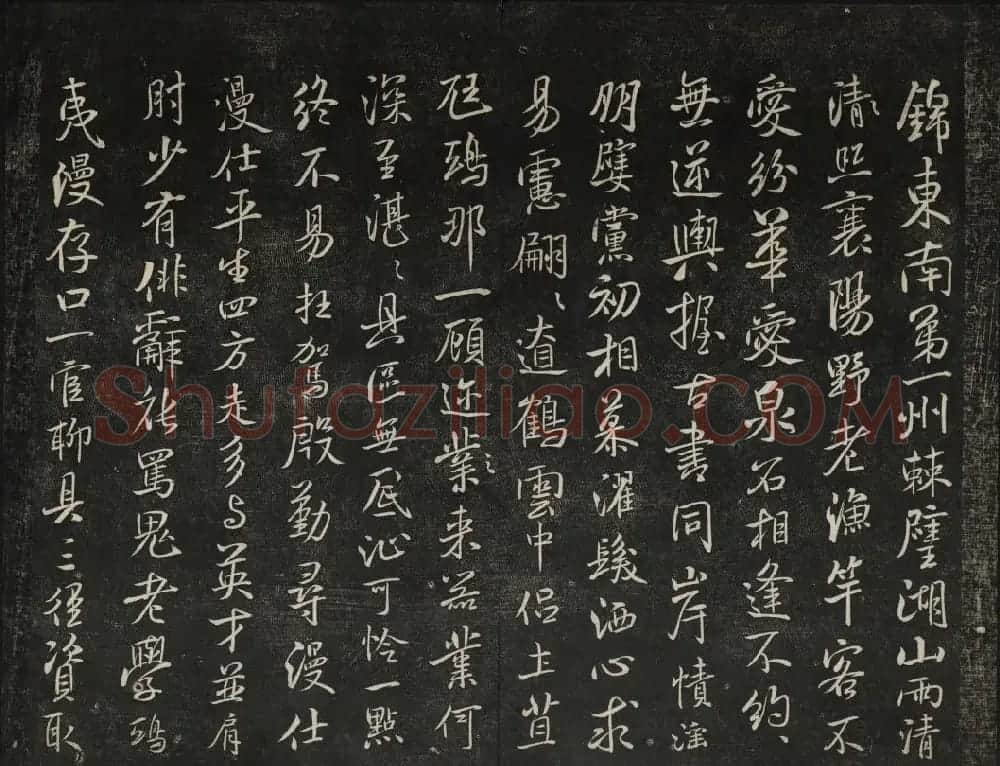 錦東南第一州棘璧湖山兩清
清照襄陽野老漁竿客不
愛紛華愛泉石相逢不約〻
無逆輿握古書同岸幘淫
朋嬖黨初相慕濯髮洒心求
易慮翩〻遼鶴雲中侣土苴
尫鴟那一顧迩業来器業何
深至湛〻具區無底沚可怜一點
終不易枉駕殷勤尋漫仕
漫仕平生四方走多与英才並肩
肘少有俳辭能罵鬼老學鴟
夷漫存口一官聊具三徑資取
Shufaziliao.COM